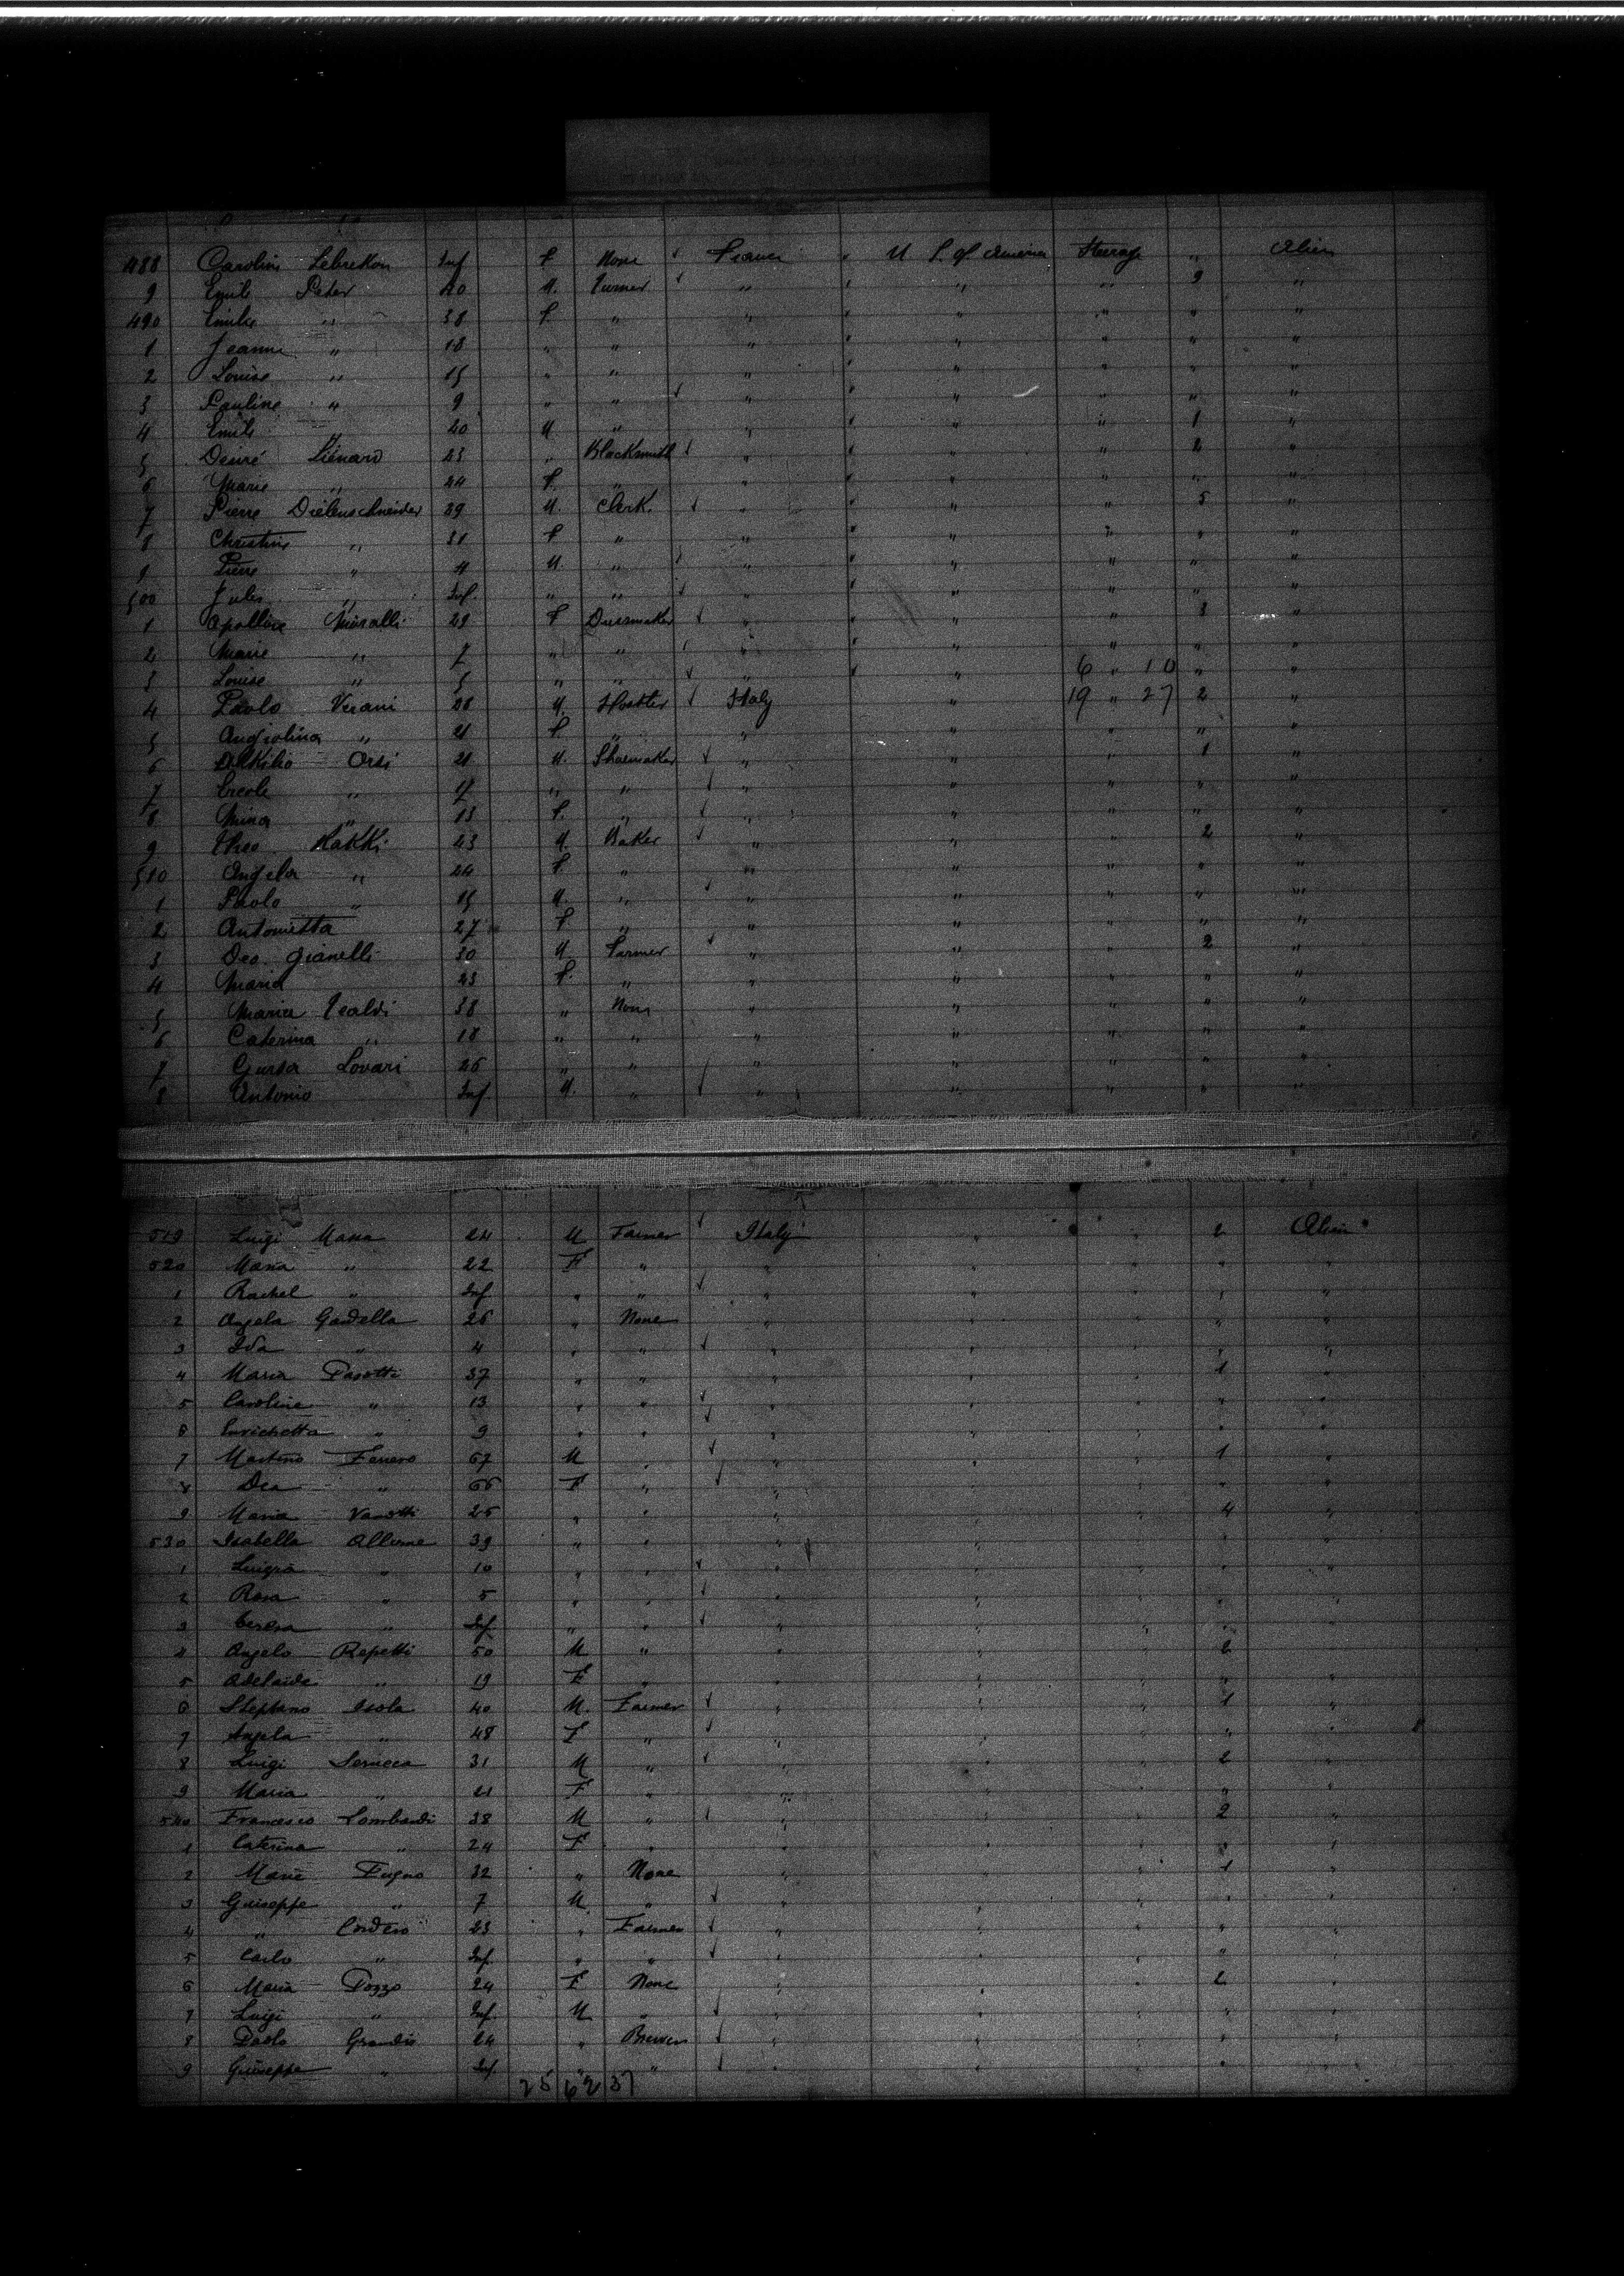 488 Caroline Lebreton Inf F None France " U S. of America Steerage " Alien
9 Emile Peter 40 M. Turner " " " " 9 "
490 Emilie " 38 F. " " " " " " "
1 Jeanne " 18 " " " " " " " "
2 Louise " 15 " " " " " " " "
3 Pauline " 9 " " " " " " " "
4 Emile " 20 M " " " " " 1 "
5 Desiré Liénard 23 " Blacksmith " " " " 2 "
6 Marie " 24 F. " " " " " " "
7 Pierre Dielenschneider 39 M. Clerk. " " " " 5 "
8 Christine " 31 F " " " " " " "
9 Pierre " 4 M. " " " " " " "
500 Jules " Inf. " " " " " " " "
1 Apolline Miralli 29 F Dressmaker " " " " 3 "
2 Marie " 7 " " " " " " " "
3 Louise " 5 " " " " " 6 " 10 " "
4 Paolo Verani 28 M. Hostler Italy " 19 " 27 2 "
5 Angiolina " 21 F. " " " " " "
6 Orsi 21 M. Shoemaker " " " 1 "
7 Ercole " 17 " " " " " " "
8 Mina " 13 F. " " " " " "
9 Theo. Rakki 43 M. Baker " " " 2 "
510 Angela " 44 F. " " " " " "
1 Paolo " 15 M. " " " " " "
2 Antonietta 27 F " " " " " "
3 Deo. Gianelli 30 M. Farmer " " " 2 "
4 Maria 23 F. " " " " " "
5 Maria 38 " None " " " " "
6 Caterina " 18 " " " " " " "
7 Lovari 26 " " " " " " "
8 Antonio Inf. M. " " " " " "
519 Luigi Massa 24 M Farmer Italy " " 2 Alien
520 Maria " 22 F " " " " " "
1 Rachel " Inf " " " " " " "
2 Angela Gardella 26 " None " " " " "
3 Ida " 4 " " " " " " "
4 Maria Pasotti 37 " " " " " 1 "
5 Caroline " 13 " " " " " " "
6 Enrichetta " 9 " " " " " " "
7 Martino Ferrero 67 M " " " " 1 "
8 Dea " 66 F " " " " " "
9 Maria Vanotti 25 " " " " " 4 "
530 Isabella Allerme 39 " " " " " " "
1 Luigia " 10 " " " " " " "
2 Rosa " 5 " " " " " " "
3 Teresa " Inf. " " " " " " "
4 Angelo Repetti 50 M " " " " 2 "
5 Adelaide " 19 F " " " " " "
6 Stephano Isola 40 M. Farmer " " " 1 "
7 Angela " 48 F " " " " " "
8 Luigi 31 M " " " " 2 "
9 Maria " 21 F " " " " " "
540 Francesco Lombardi 38 M " " " " 2 "
1 Caterina " 24 F " " " " " "
2 Maria Fugno 32 " None " " " 1 "
3 Guiseppe " 7 M " " " " " "
4 " Cordero 23 " Farmer " " " " "
5 Carlo " Inf. " " " " " " "
6 Maria Pozzo 24 F None " " " 2 "
7 Luigi " Inf. M " " " " " "
8 Paolo Grandis 24 " Brewer " " " " "
9 Guiseppe " Inf. " " " " " " "
25 62 37